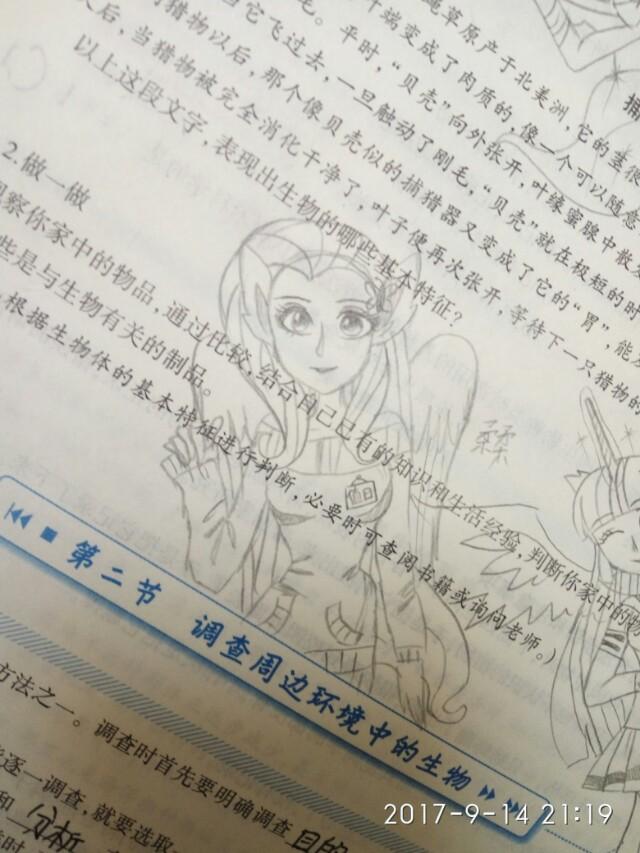 蝇草原产于北美洲，它的茎很
捕
叶端变成了肉质的，像一个可以随意
毛。平时，“贝壳”向外张开，叶缘蜜腺中散发
当它飞过去，一旦触动了刚毛，“贝壳”就在极短的时
猎物以后，那个像贝壳似的捕猎器又变成了它的“胃”，能
天后，当猎物被完全消化干净了，叶子便再次张开，等待下一只猎物的
以上这段文字，表现出生物的哪些基本特征？
2.做一做
观察你家中的物品，通过比较，结合自己已有的知识和生活经验，判断你家中的物
些是与生物有关的制品。
根据生物体的基本特征进行判断，必要时可查阅书籍或询问老师。）
第二节 调查周边环境中的生物
方法之一。调查时首先要明确调查目的
逐一调查，就要选取
和 分析
2017-9-14 21:19